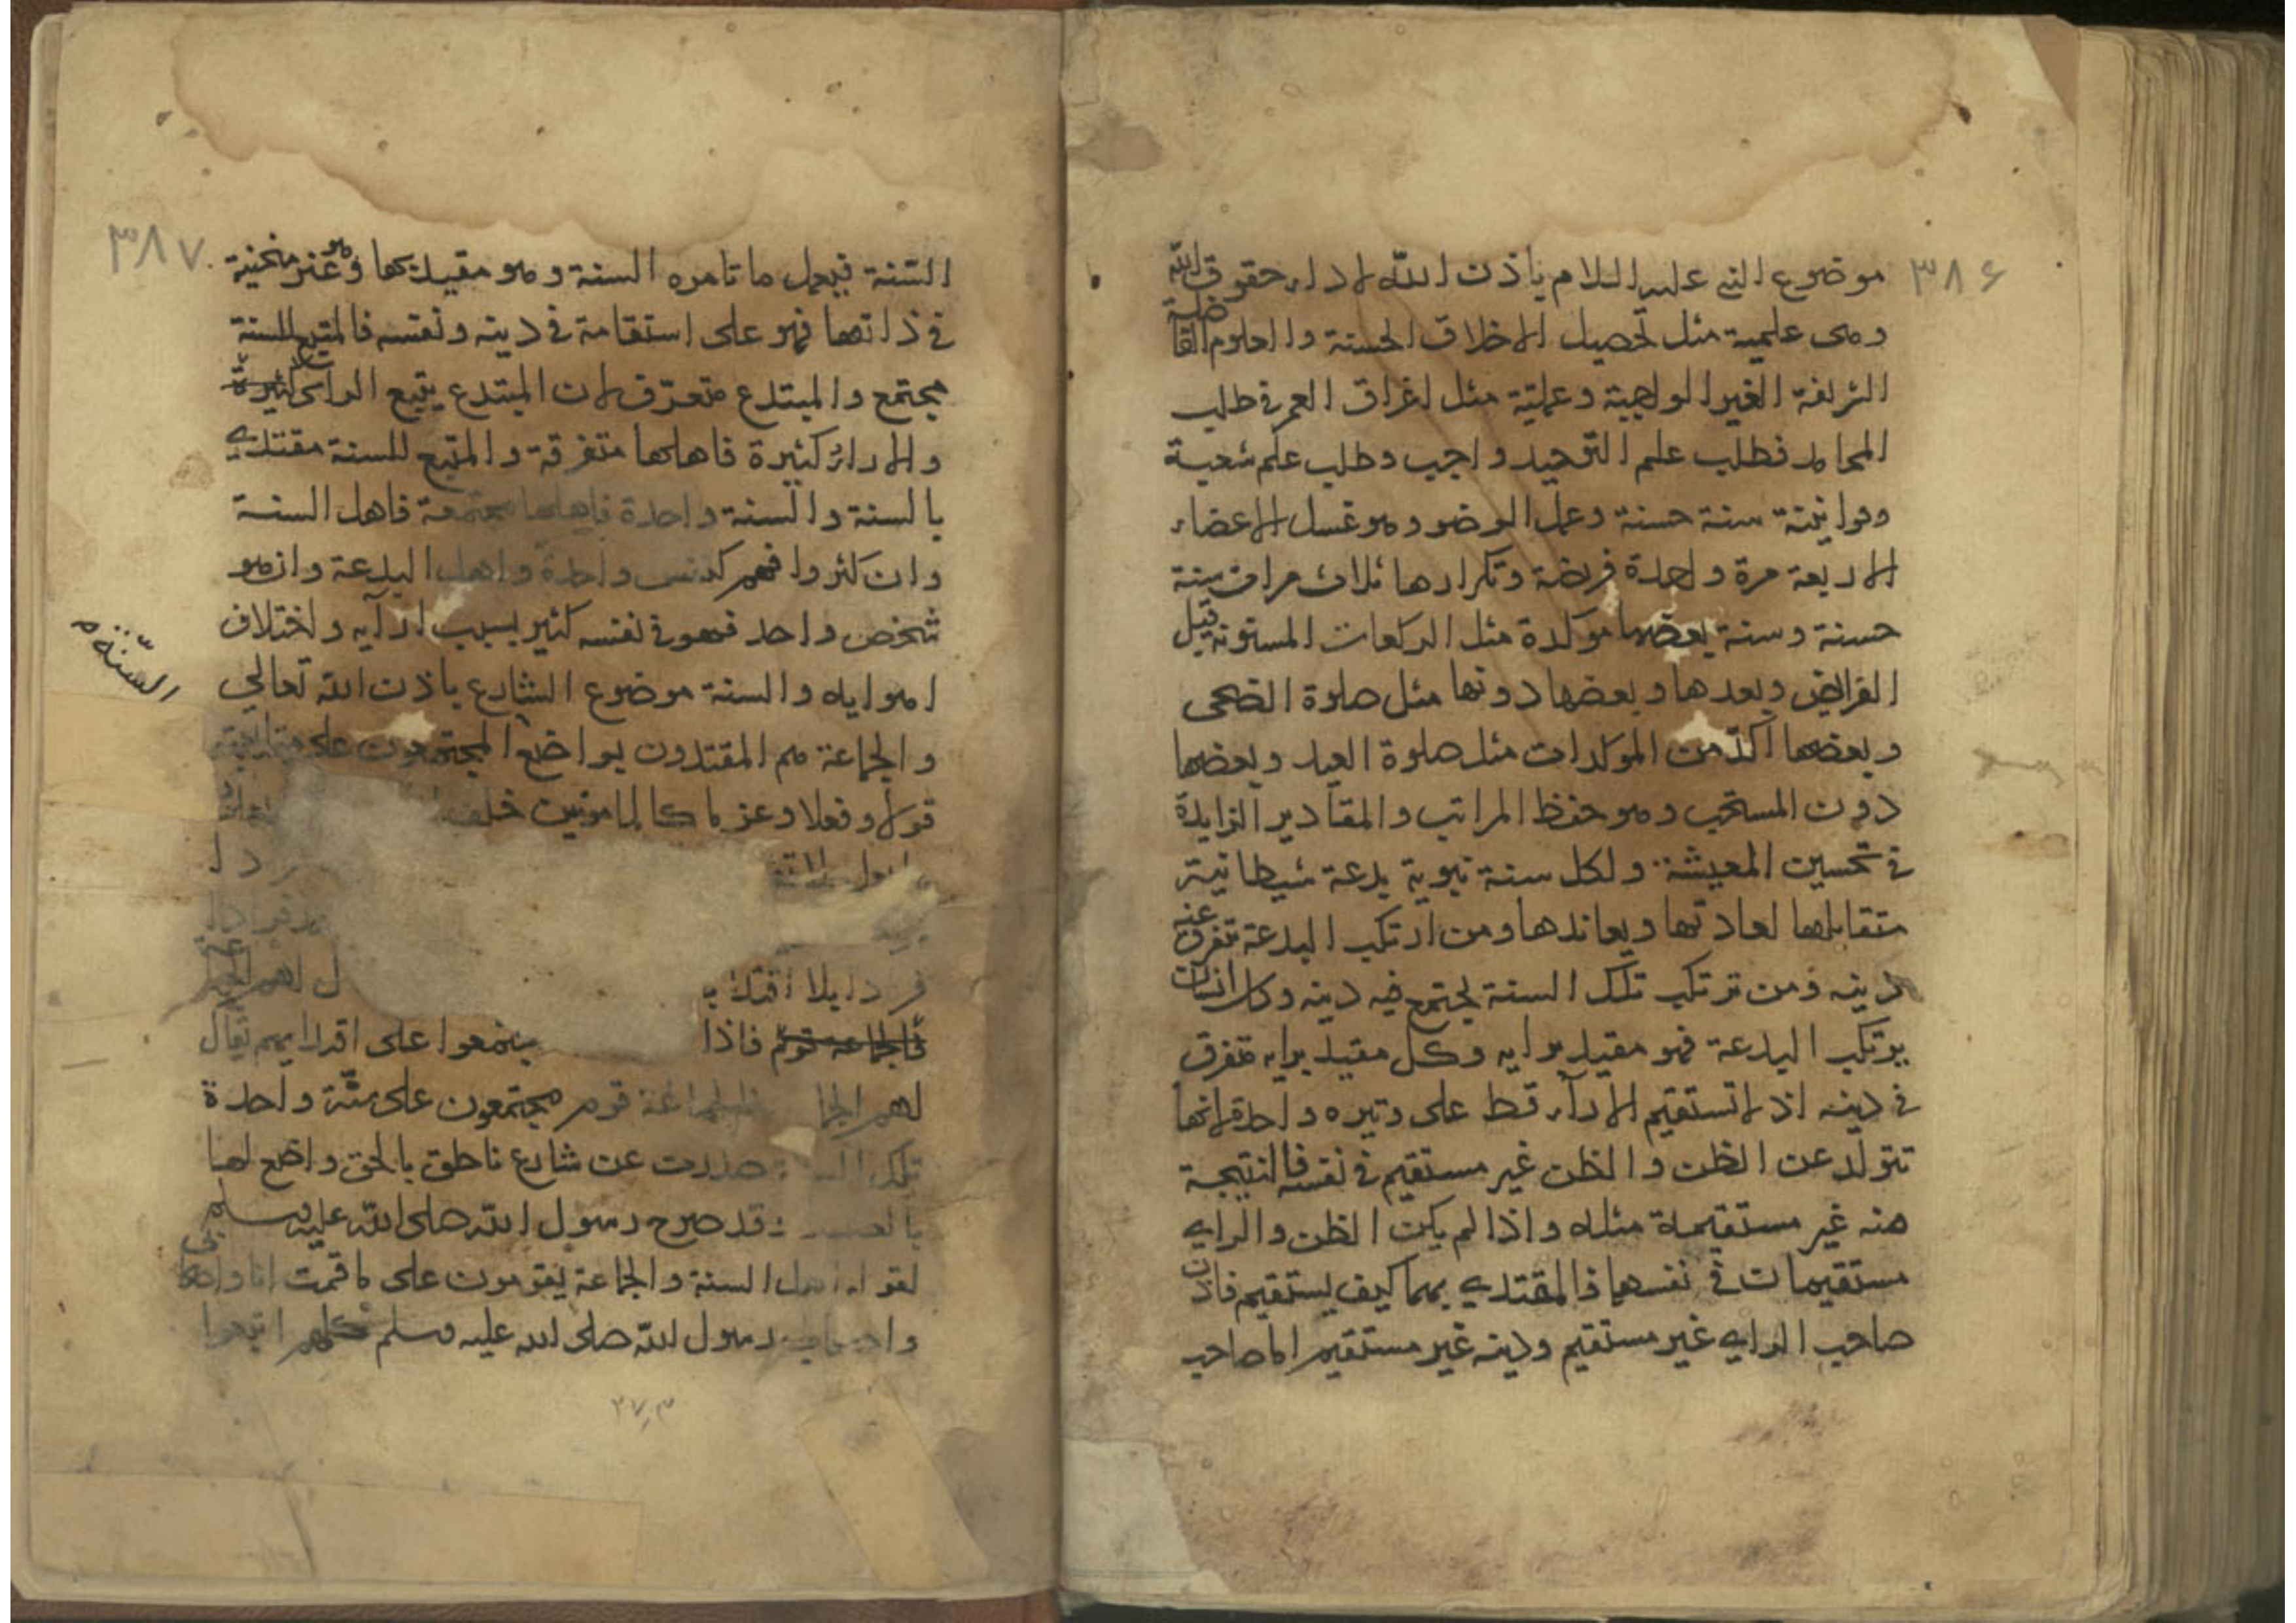 ٣٨۶
موضوع النبي عليه السلام باذن الله لاداء حقوق الله
وهى علمية مثل تحصيل الاخلاق الحسنة والعلوم الفاضلة
الشريفة الغير الواجبة وعملية مثل اغراق العمر في طلب
المحامد فطلب علم التوحيد واجب وطلب علم شعبه
وقوانينه سنة حسنة وعمل الوضو وهو غسل الاعضاء
الاربعة مرة واحدة فريضة وتكرارها ثلاث مرات سنة
حسنة وسنة بعضها موكدة مثل الركعات المسنونة قبل
الفرائض وبعدها وبعضها دونها مثل صلوة الضحى
وبعضها آكد من الموكدات مثل صلوة العيد وبعضها
دون المستحب وهو حفظ المراتب والمقادير الزايدة
في تحسين المعيشة ولكل سنة نبوية بدعة شيطانية
متقابلها لعادتها ويعاندها ومن ارتكب البدعة تفرق عنه
دينه ومن ترتكب تلك السنة يجتمع فيه دينه وكل انسان
يرتكب البدعة فهو مقيد برايه وكل مقيد برايه متفرق
في دينه اذ لا تستقيم الارآء قط على وتيره واحدة لانها
تتولد عن الظن والظن غير مستقيم في نفسه فالنتيجة
منه غير مستقيمة مثله واذا لم يكن الظن والراي
مستقيمان في نفسهما فالمقتدي بهما كيف يستقيم فاذن
صاحب الراي غير مستقيم ودينه غير مستقيم اما صاحب
٣٨٧
السنة فيعمل ما تامره السنة وهو مقيد بها وهو غير منحنية
في ذاتها فهو على استقامة في دينه ونفسه فالمتبع للسنة
مجتمع والمبتدع متفرق لان المبتدع يتبع الراي
والاراء كثيرة فاهلها متفرقة والمتبع للسنة مقتدي
بالسنة والسنة واحدة فاهلها مجتمعة فاهل السنة
وان كثروا فهم كنفس واحدة واهل البدعة وان هو
شخص واحد فهو في نفسه كثير بسبب ارآيه واختلاف
اهوايه والسنة موضوع الشارع باذن الله تعالى
والجماعة هم المقتدون بواضع المجتمعون على متابعته
قولا وفعلا وعزما كالمامونين خلف

فر
فرد بلا اقتد
فالجماعة قوم فاذا يجتمعوا على اقدايهم يقال
لهم الجما فالجماعة قوم مجتمعون على سنة واحدة
تلك صدرت عن شارع ناطق بالحق واضع لها
وقد صرح رسول الله صلى الله عليه وسلم
السنة والجماعة يقومون على ما قمت انا واصحابي
رسول الله صلى الله عليه وسلم كلهم
السنة